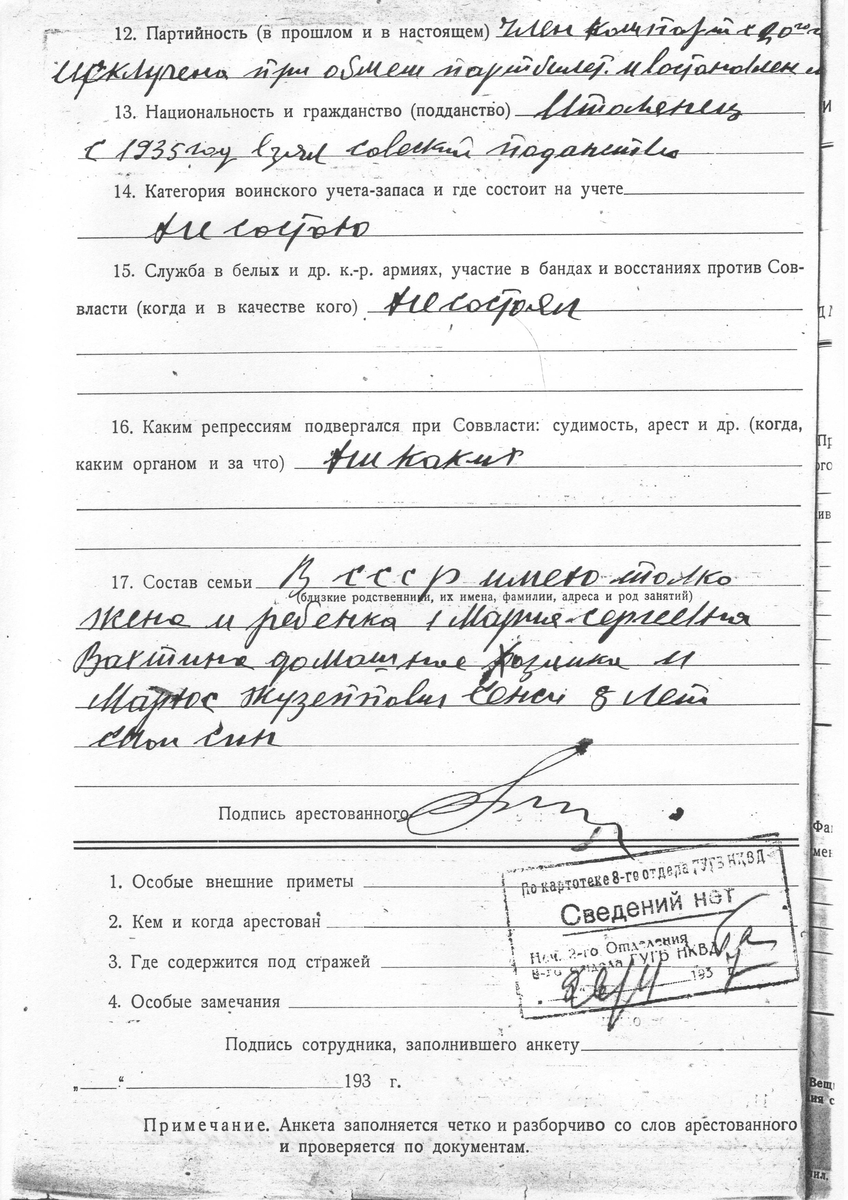 12. Партийность (в прошлом и в настоящем) член компарт с 20го г
Исключена при обмен партбилет. и востановлен
13. Национальность и гражданство (подданство) Итолянец
с 1935 год взял совеский поданство
14. Категория воинского учета-запаса и где состоит на учете
Ни состою
15. Служба в белых и др. к.-р. армиях, участие в бандах и восстаниях против Сов-
власти (когда и в качестве кого) Ни состоял
16. Каким репрессиям подвергался при Соввласти: судимость, арест и др. (когда,
каким органом и за что) Ни каких
17. Состав семьи В СССР имею толко
(близкие родственники, их имена, фамилии, адреса и род занятий)
жена и ребенка Мария Сергеевна
Вахтина домашние хозяика и
Мариос Жузеппович Сенси 8 лет
син
Подпись арестованного
1. Особые внешние приметы
2. Кем и когда арестован
3. Где содержится под стражей
4. Особые замечания
По картотеке 8-го отдела ГУГБ НКВД
Сведений нет
Нач. 2-го Отделения
8-го отдела ГУГБ НКВД
193
Подпись сотрудника, заполнившего анкету
„ “ 193 г.
Примечание. Анкета заполняется четко и разборчиво со слов арестованного
и проверяется по документам.